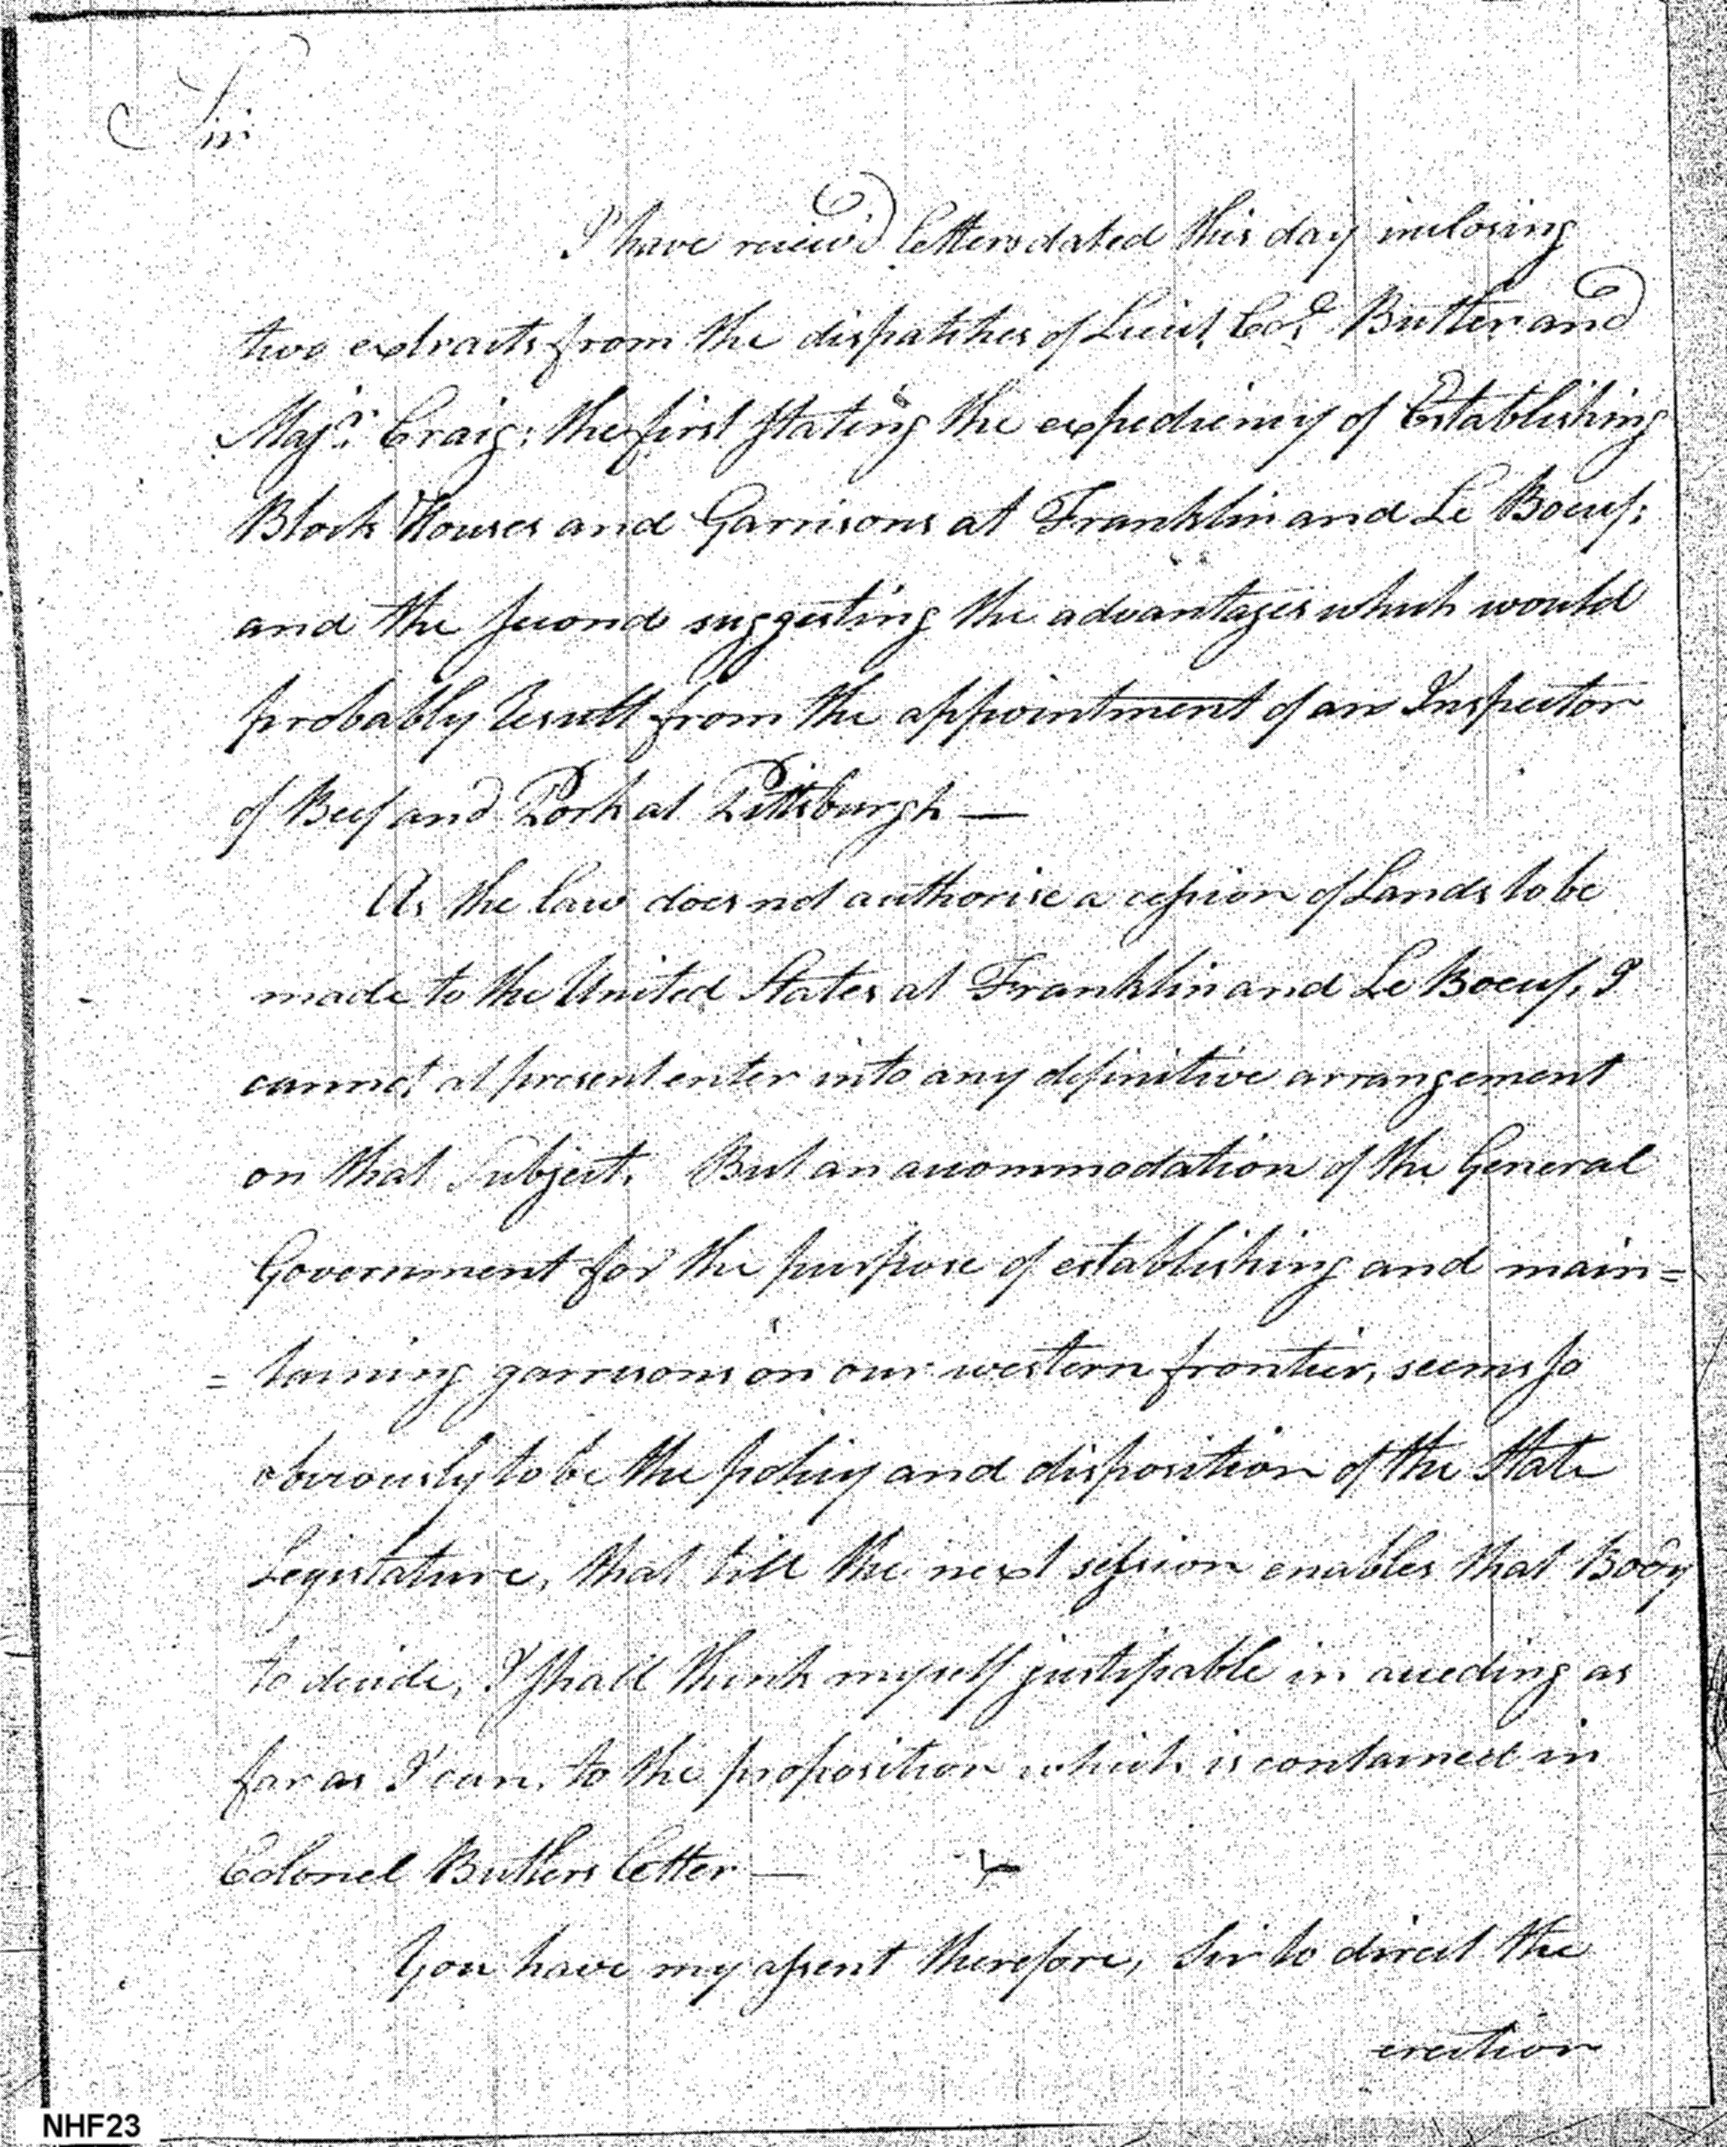 Sir
I have receiv'd letters dated this day inclosing
two extracts from the dispatches of Lieut. Col. Butler and
Majr. Craig; the first stating the expediency of Establishing
Block Houses and Garrisons at Franklin and Le Boeuf;
and the second suggesting the advantages which would
probably result from the appointment of an Inspector
of Beef and Pork at Pittsburgh —
As the law does not authorise a cession of Lands to be
made to the United States at Franklin and Le Boeuf, I
cannot at present enter into any definitive arrangement
on that Subject. But an accommodation of the General
Government for the purpose of establishing and main=
=taining garrisons on our western frontier, seems so
obviously to be the policy and disposition of the State
Legislature, that till the next session enables that Body
to decide, I shall think myself justifiable in acceding as
far as I can, to the proposition which is contained in
Colonel Butlers letter —
You have my assent therefore, Sir to direct the
erection
NHF23